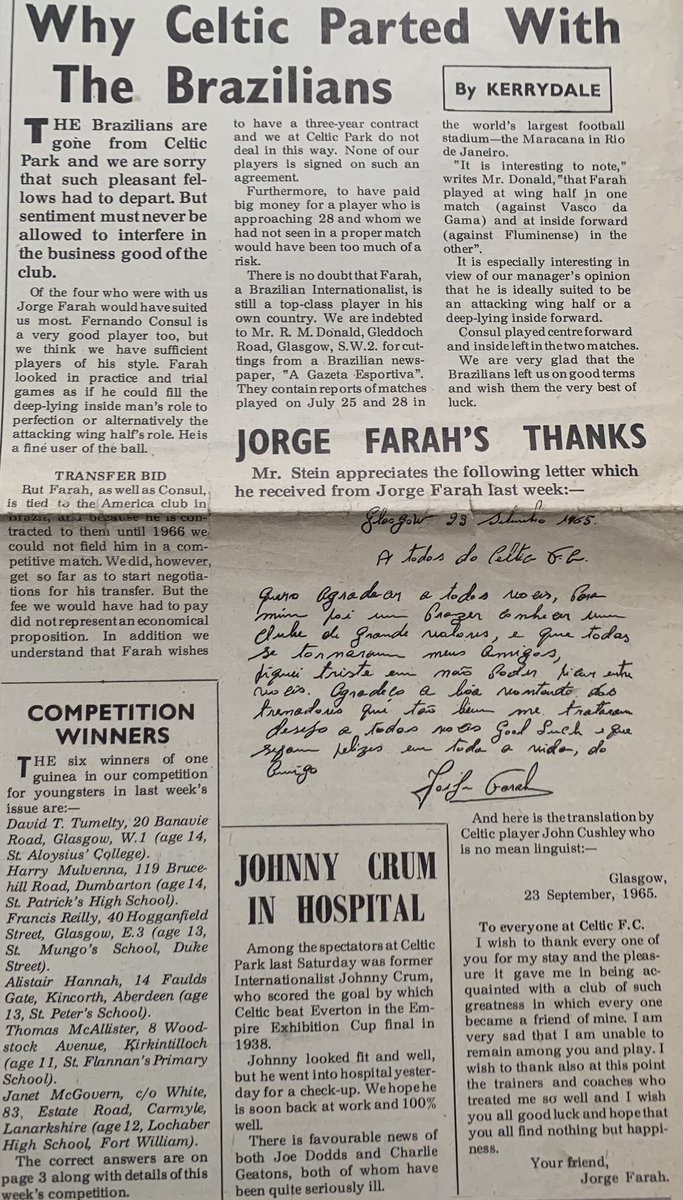 Why Celtic Parted With
The Brazilians
By KERRYDALE
THE Brazilians are
gone from Celtic
Park and we are sorry
that such pleasant fel-
lows had to depart. But
sentiment must never be
allowed to interfere in
the business good of the
club.
Of the four who were with us
Jorge Farah would have suited
us most. Fernando Consul is
a very good player too, but
we think we have sufficient
players of his style. Farah
looked in practice and trial
games as if he could fill the
deep-lying inside man's role to
perfection or alternatively the
attacking wing half's role. He is
a fine user of the ball.
TRANSFER BID
But Farah, as well as Consul,
is tied to the America club in
Brazil, and because he is con-
tracted to them until 1966 we
could not field him in a com-
petitive match. We did, however,
get so far as to start negotia-
tions for his transfer. But the
fee we would have had to pay
did not represent an economical
proposition. In addition we
understand that Farah wishes
to have a three-year contract
and we at Celtic Park do not
deal in this way. None of our
players is signed on such an
agreement.
Furthermore, to have paid
big money for a player who is
approaching 28 and whom we
had not seen in a proper match
would have been too much of a
risk.
There is no doubt that Farah,
a Brazilian Internationalist, is
still a top-class player in his
own country. We are indebted
to Mr. R. M. Donald, Gleddoch
Road, Glasgow, S.W.2. for cut-
tings from a Brazilian news-
paper, "A Gazeta Esportiva".
They contain reports of matches
played on July 25 and 28 in
the world's largest football
stadium—the Maracana in Rio
de Janeiro.
"It is interesting to note,"
writes Mr. Donald, "that Farah
played at wing half in one
match (against Vasco da
Gama) and at inside forward
(against Fluminense) in the
other".
It is especially interesting in
view of our manager's opinion
that he is ideally suited to be
an attacking wing half or a
deep-lying inside forward.
Consul played centre forward
and inside left in the two matches.
We are very glad that the
Brazilians left us on good terms
and wish them the very best of
luck.
JORGE FARAH'S THANKS
Mr. Stein appreciates the following letter which
he received from Jorge Farah last week:—
Glasgow 23 Setembro 1965.
A todos do Celtic F.C.
Quero agradecer a todos voces, para
mim foi um prazer conhecer um
clube de grande valores, e que todos
se tornaram meus amigos,
fiquei triste em não poder ficar entre
voces. Agradeço a boa vontade dos
treinadores que tão bem me trataram
desejo a todos voces Good Luck e que
sejam felizes em toda a vida, do
amigo
Jorge Farah
And here is the translation by
Celtic player John Cushley who
is no mean linguist:—
Glasgow,
23 September, 1965.
To everyone at Celtic F.C.
I wish to thank every one of
you for my stay and the pleas-
ure it gave me in being ac-
quainted with a club of such
greatness in which every one
became a friend of mine. I am
very sad that I am unable to
remain among you and play. I
wish to thank also at this point
the trainers and coaches who
treated me so well and I wish
you all good luck and hope that
you all find nothing but happi-
ness.
Your friend,
Jorge Farah.
COMPETITION
WINNERS
THE six winners of one
guinea in our competition
for youngsters in last week's
issue are:—
David T. Tumelty, 20 Banavie
Road, Glasgow, W.1 (age 14,
St. Aloysius' College).
Harry Mulvenna, 119 Bruce-
hill Road, Dumbarton (age 14,
St. Patrick's High School).
Francis Reilly, 40 Hogganfield
Street, Glasgow, E.3 (age 13,
St. Mungo's School, Duke
Street).
Alistair Hannah, 14 Faulds
Gate, Kincorth, Aberdeen (age
13, St. Peter's School).
Thomas McAllister, 8 Wood-
stock Avenue, Kirkintilloch
(age 11, St. Flannan's Primary
School).
Janet McGovern, c/o White,
83, Estate Road, Carmyle,
Lanarkshire (age 12, Lochaber
High School, Fort William).
The correct answers are on
page 3 along with details of this
week's competition.
JOHNNY CRUM
IN HOSPITAL
Among the spectators at Celtic
Park last Saturday was former
Internationalist Johnny Crum,
who scored the goal by which
Celtic beat Everton in the Em-
pire Exhibition Cup final in
1938.
Johnny looked fit and well,
but he went into hospital yester-
day for a check-up. We hope he
is soon back at work and 100%
well.
There is favourable news of
both Joe Dodds and Charlie
Geatons, both of whom have
been quite seriously ill.